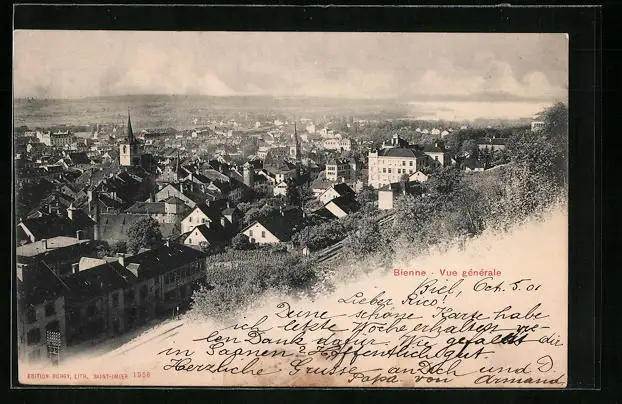 Bienne - Vue générale
Biel, Oct. 5. 01
Lieber Rico!
Deine schöne Karte habe
ich letzte Woche erhalten vie-
len Dank dafür. Wie gefällt die
in Saanen? Hoffentlich gut
Herzliche Grüsse an Dich und D
Papa von Armand
EDITION BURGY, LITH., SAINT-IMIER 1958